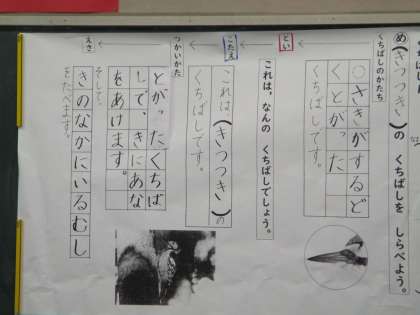 め(きつつき)の くちばしを しらべよう。
くちばしのかたち
○さきがするど
くとがった
くちばしです。
とい
これは、なんの くちばしでしょう。
こたえ
これは(きつつき)の
くちばしです。
つかいかた
とがったくちば
しで、きにあな
をあけます。
えさ
そして、
きのなかにいるむし
をたべます。